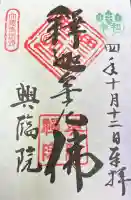 令和
四年十月十二日奉拝
釋迦牟尼佛
興臨院